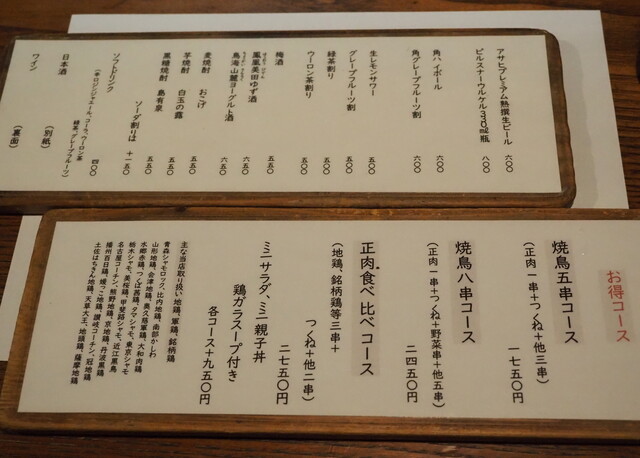 アサヒプレミアム熟撰生ビール 六〇〇
ピルスナーウルケル330㎖瓶 八〇〇
角ハイボール 六〇〇
角グレープフルーツ割 六〇〇
生レモンサワー 五〇〇
グレープフルーツ割 五〇〇
緑茶割り 五〇〇
ウーロン茶割り 五〇〇
梅酒 五五〇
鳳凰美田ゆず酒 六五〇
鳥海山麓ヨーグルト酒 六五〇
麦焼酎 おこげ 五五〇
芋焼酎 白玉の露 五五〇
黒糖焼酎 島有泉 五五〇
ソーダ割りは +一五〇
ソフトドリンク 四〇〇
(辛口ジンジャエール、コーラ、ウーロン茶
緑茶、グレープフルーツ)
日本酒 (別紙)
ワイン (裏面)
お得コース
焼鳥五串コース
(正肉一串+つくね+他三串)
一七五〇円
焼鳥八串コース
(正肉一串+つくね+野菜串+他五串)
二四五〇円
正肉食べ比べコース
(地鶏、銘柄鶏等三串+
つくね+他二串)
二七五〇円
ミニサラダ、ミニ親子丼
鶏ガラスープ付き
各コース+九五〇円
主な当店取り扱い地鶏、軍鶏、銘柄鶏
青森シャモロック、比内地鶏、南部かしわ
山形地鶏、会津地鶏、奥久慈軍鶏、大和肉鶏
水郷赤鶏、つくば茜鶏、タマシャモ、東京シャモ
栃木シャモ、美桜鶏、甲斐路シャモ、近江黒鳥
名古屋コーチン、熊野地鶏、京地鶏、丹波黒鶏
播州百日鶏、媛っこ地鶏、讃岐コーチン、冠地鶏
土佐はちきん地鶏、天草大王、地頭鶏、薩摩地鶏